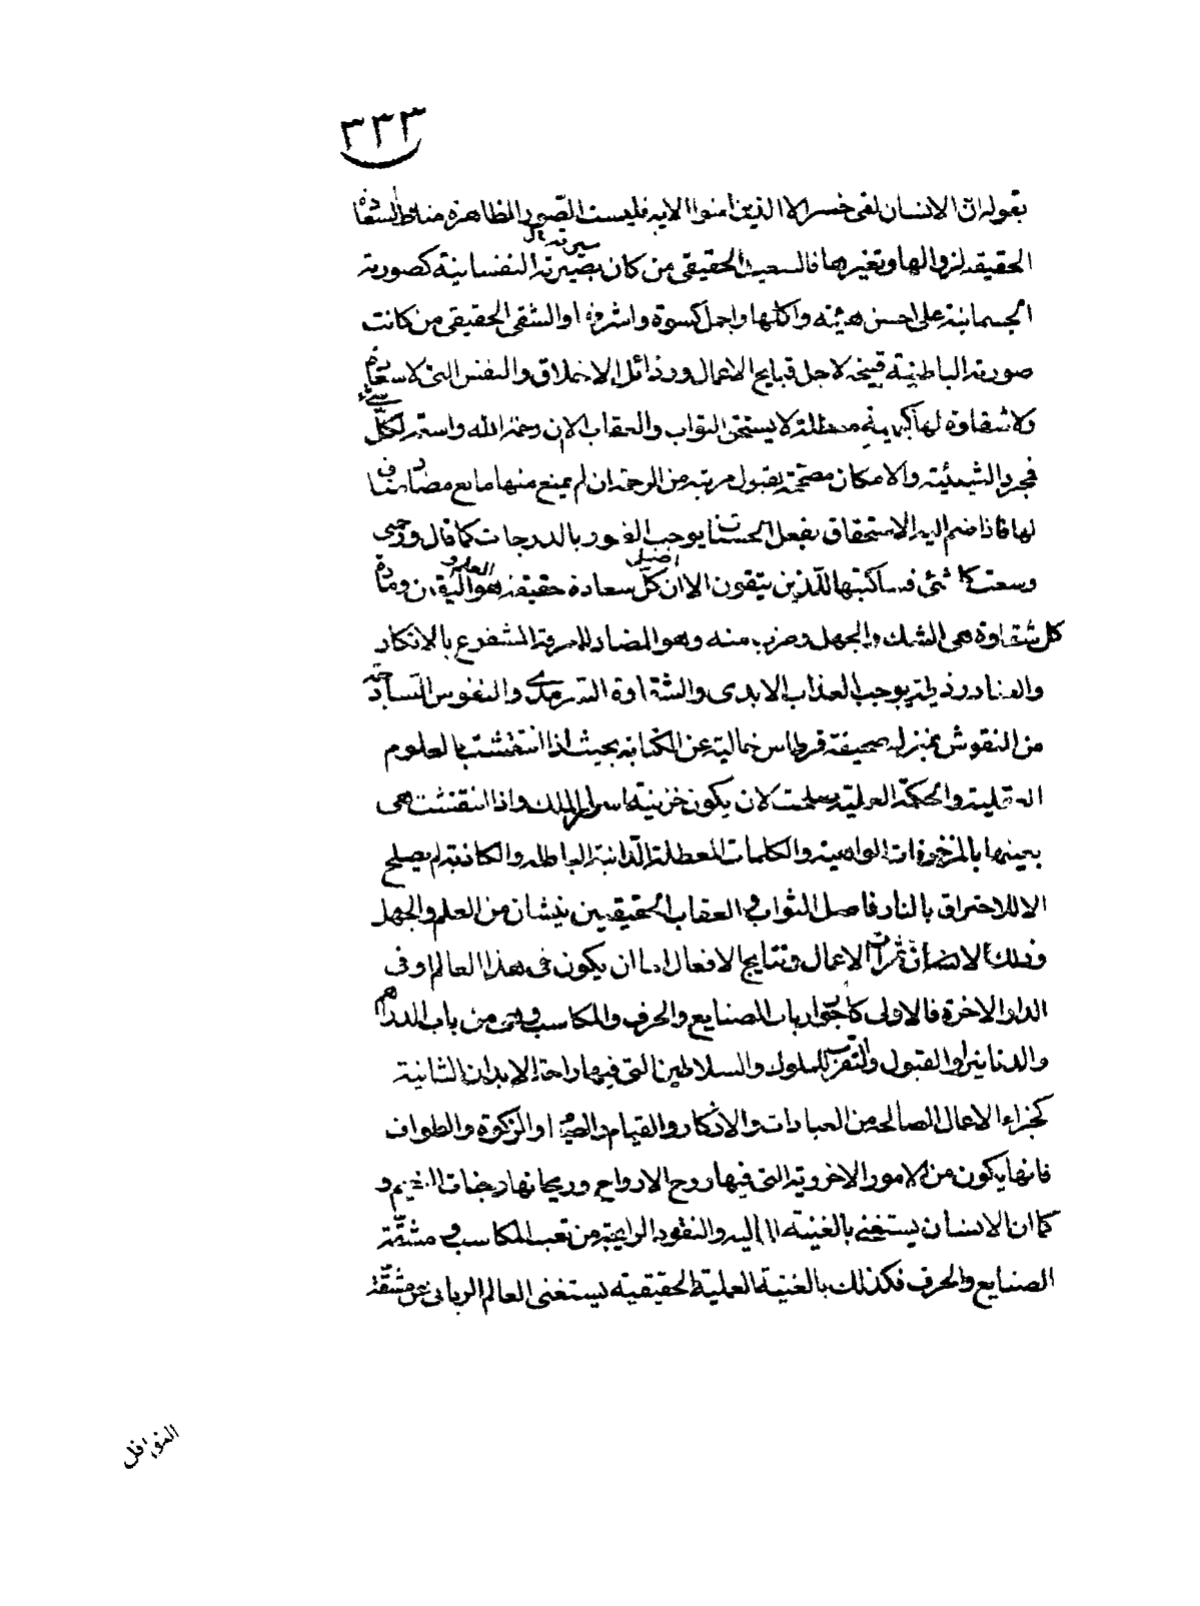 ٣٣٣
بقوله ان الانسان لفى خسر الا الذين امنوا الايه فليست الصور الظاهرة مناط الشقاوة
الحقيقه لزوالها وتغيرها فالسعيد الحقيقى من كان بصيرته النفسانية كصورته
سيرته
الجسمانية على احسن هيئته واكملها واجمل كسوة واشرفها والشقى الحقيقى من كانت
صورته الباطنية قبيحه لاجل قبايح الاعمال ورذائل الاخلاق والنفس التى لا سعادة
ولا شقاوة لها كبهيمة معطلة لا يستحق الثواب والعقاب الا ان رحمة الله واسعة لكل
شىء
فمجرد الشيئية والامكان مصححة لقبول مرتبه من الرحمة ان لم يمنع منها مانع مضاد مناف
لها فاذا ضم اليه الاستحقاق بفعل الحسنات يوجب الفوز بالدرجات كما قال ورحمتى
وسعت كل شئ فساكتبها للذين يتقون الا ان كل سعادة حقيقة هو اليقين ومادة
اصل العلم و
كل شقاوة هى الشك والجهل وضرب منه وهو المضاد للمعرفة المتفرع بالانكار
والعناد رذيلة يوجب العذاب الابدى والشقاوة السرمدى والنفوس الساذجة
من النقوش بمنزله صحيفة قرطاس خالية عن الكتابه بحيث اذا انتقشت بالعلوم
العقلية والحكمة العملية صلحت لان يكون خزينة اسرار الملك واذا انتقشت هى
بعينها بالمزخرفات الواهية والكلمات المعطلة الباطله والكاذبة لم يصلح
الا للاحتراق بالنار فاصل الثواب و العقاب الحقيقيين ينشان من العلم والجهل
وذلك لان ثمرات الاعمال ونتايج الافعال اما ان يكون فى هذا العالم او فى
الدار الاخرة فالاولى كاجرة ارباب الصنايع والحرف والمكاسب وهى من باب الدراهم
والدنانير او القبول والتقرب للملوك والسلاطين التى فيها راحة الابدان الثانية
كجزاء الاعمال الصالحه من العبادات والاذكار والقيام والصيام والزكوة والطواف
فانها يكون من الامور الاخروية التى فيها روح الارواح وريحانها وجنات النعيم و
كما ان الانسان يستغنى بالغنية المالية والنقود الرايجة من تعب المكاسب و مشقة
الصنايع والحرف فكذلك بالغنية العملية الحقيقية يستغنى العالم الربانى عن مشقة
النوافل